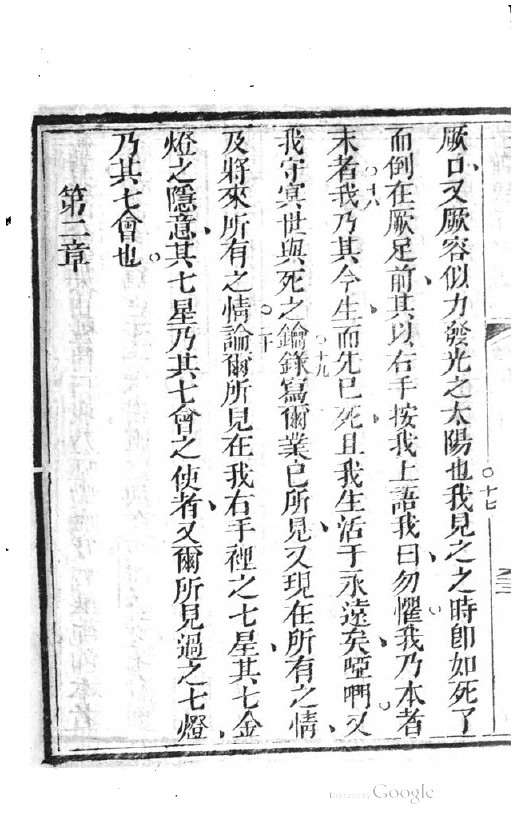 厥口、又厥容似力發光之太陽也。十七我見之之時卽如死了
而倒在厥足前、其以右手按我上語我曰、勿懼。我乃本者
末者。十八我乃其今生、而先已死、且我生活于永遠矣、啞啊。又
我守冥世與死之鑰。十九錄寫爾業已所見、又現在所有之情、
及將來所有之情。二十論爾所見在我右手裡之七星、其七金
燈之隱意、其七星乃其七會之使者、又爾所見過之七燈、
乃其七會也。
第二章
Digitized by Google